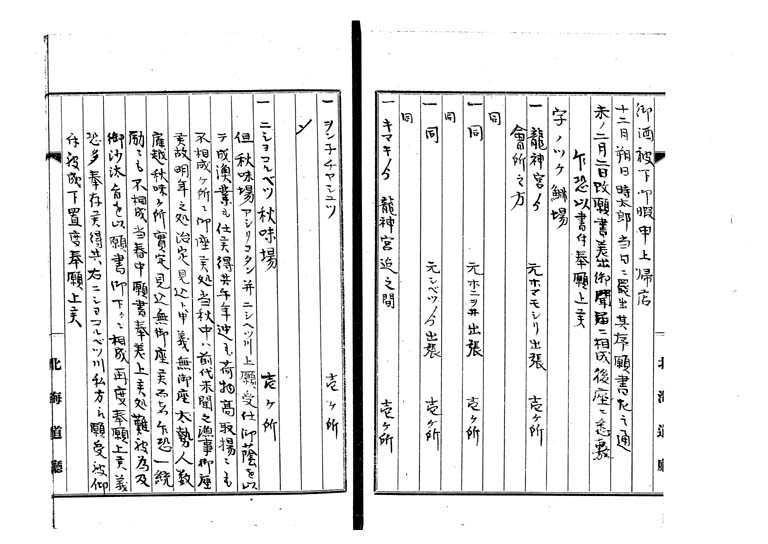 御酒被下御暇申上帰店
十二月朔日時太郎当日ニ罷出其序願書左之通
未ノ二月二日改願書差出御聞届ニ相成後座ニ悉敷
乍恐以書付奉願上候
字ノツケ鯡場
一 龍神宮ゟ 元ホニマモシリ出張 壱ヶ所
會所之方
一 同 元ホニヲヰ出張 壱ヶ所
同
一 同 元シベツノ ゟ出張 壱ヶ所
同
一 キマキノ ゟ 龍神宮迄之間 壱ヶ所
北海道廳
一 ヲンネチヤシコツ 壱ヶ所
〆
一 ニシヨマルベツ秋味場 壱ヶ所
但秋味場アシリコタン并ニシベツ川上願受仕御蔭を以
テ成漁業も仕候得共年年迚も荷物高取揚ニも
不相成ヶ所ニ御座候処当秋中ハ前代未聞之漁事御座
候故明年之処治定見込ト申義無御座大勢人数
雇越秋味ヶ所實定見込無御座候而者乍恐一統
励ニも不相成当春中願書奉差上候処難被為及
御沙汰旨を以願書御下ケニ相成再度奉願上候義
恐多奉存候得共右ニシヨマルベツ川私方ゟ願受被仰
付被成下置度奉願上候
北海道廳